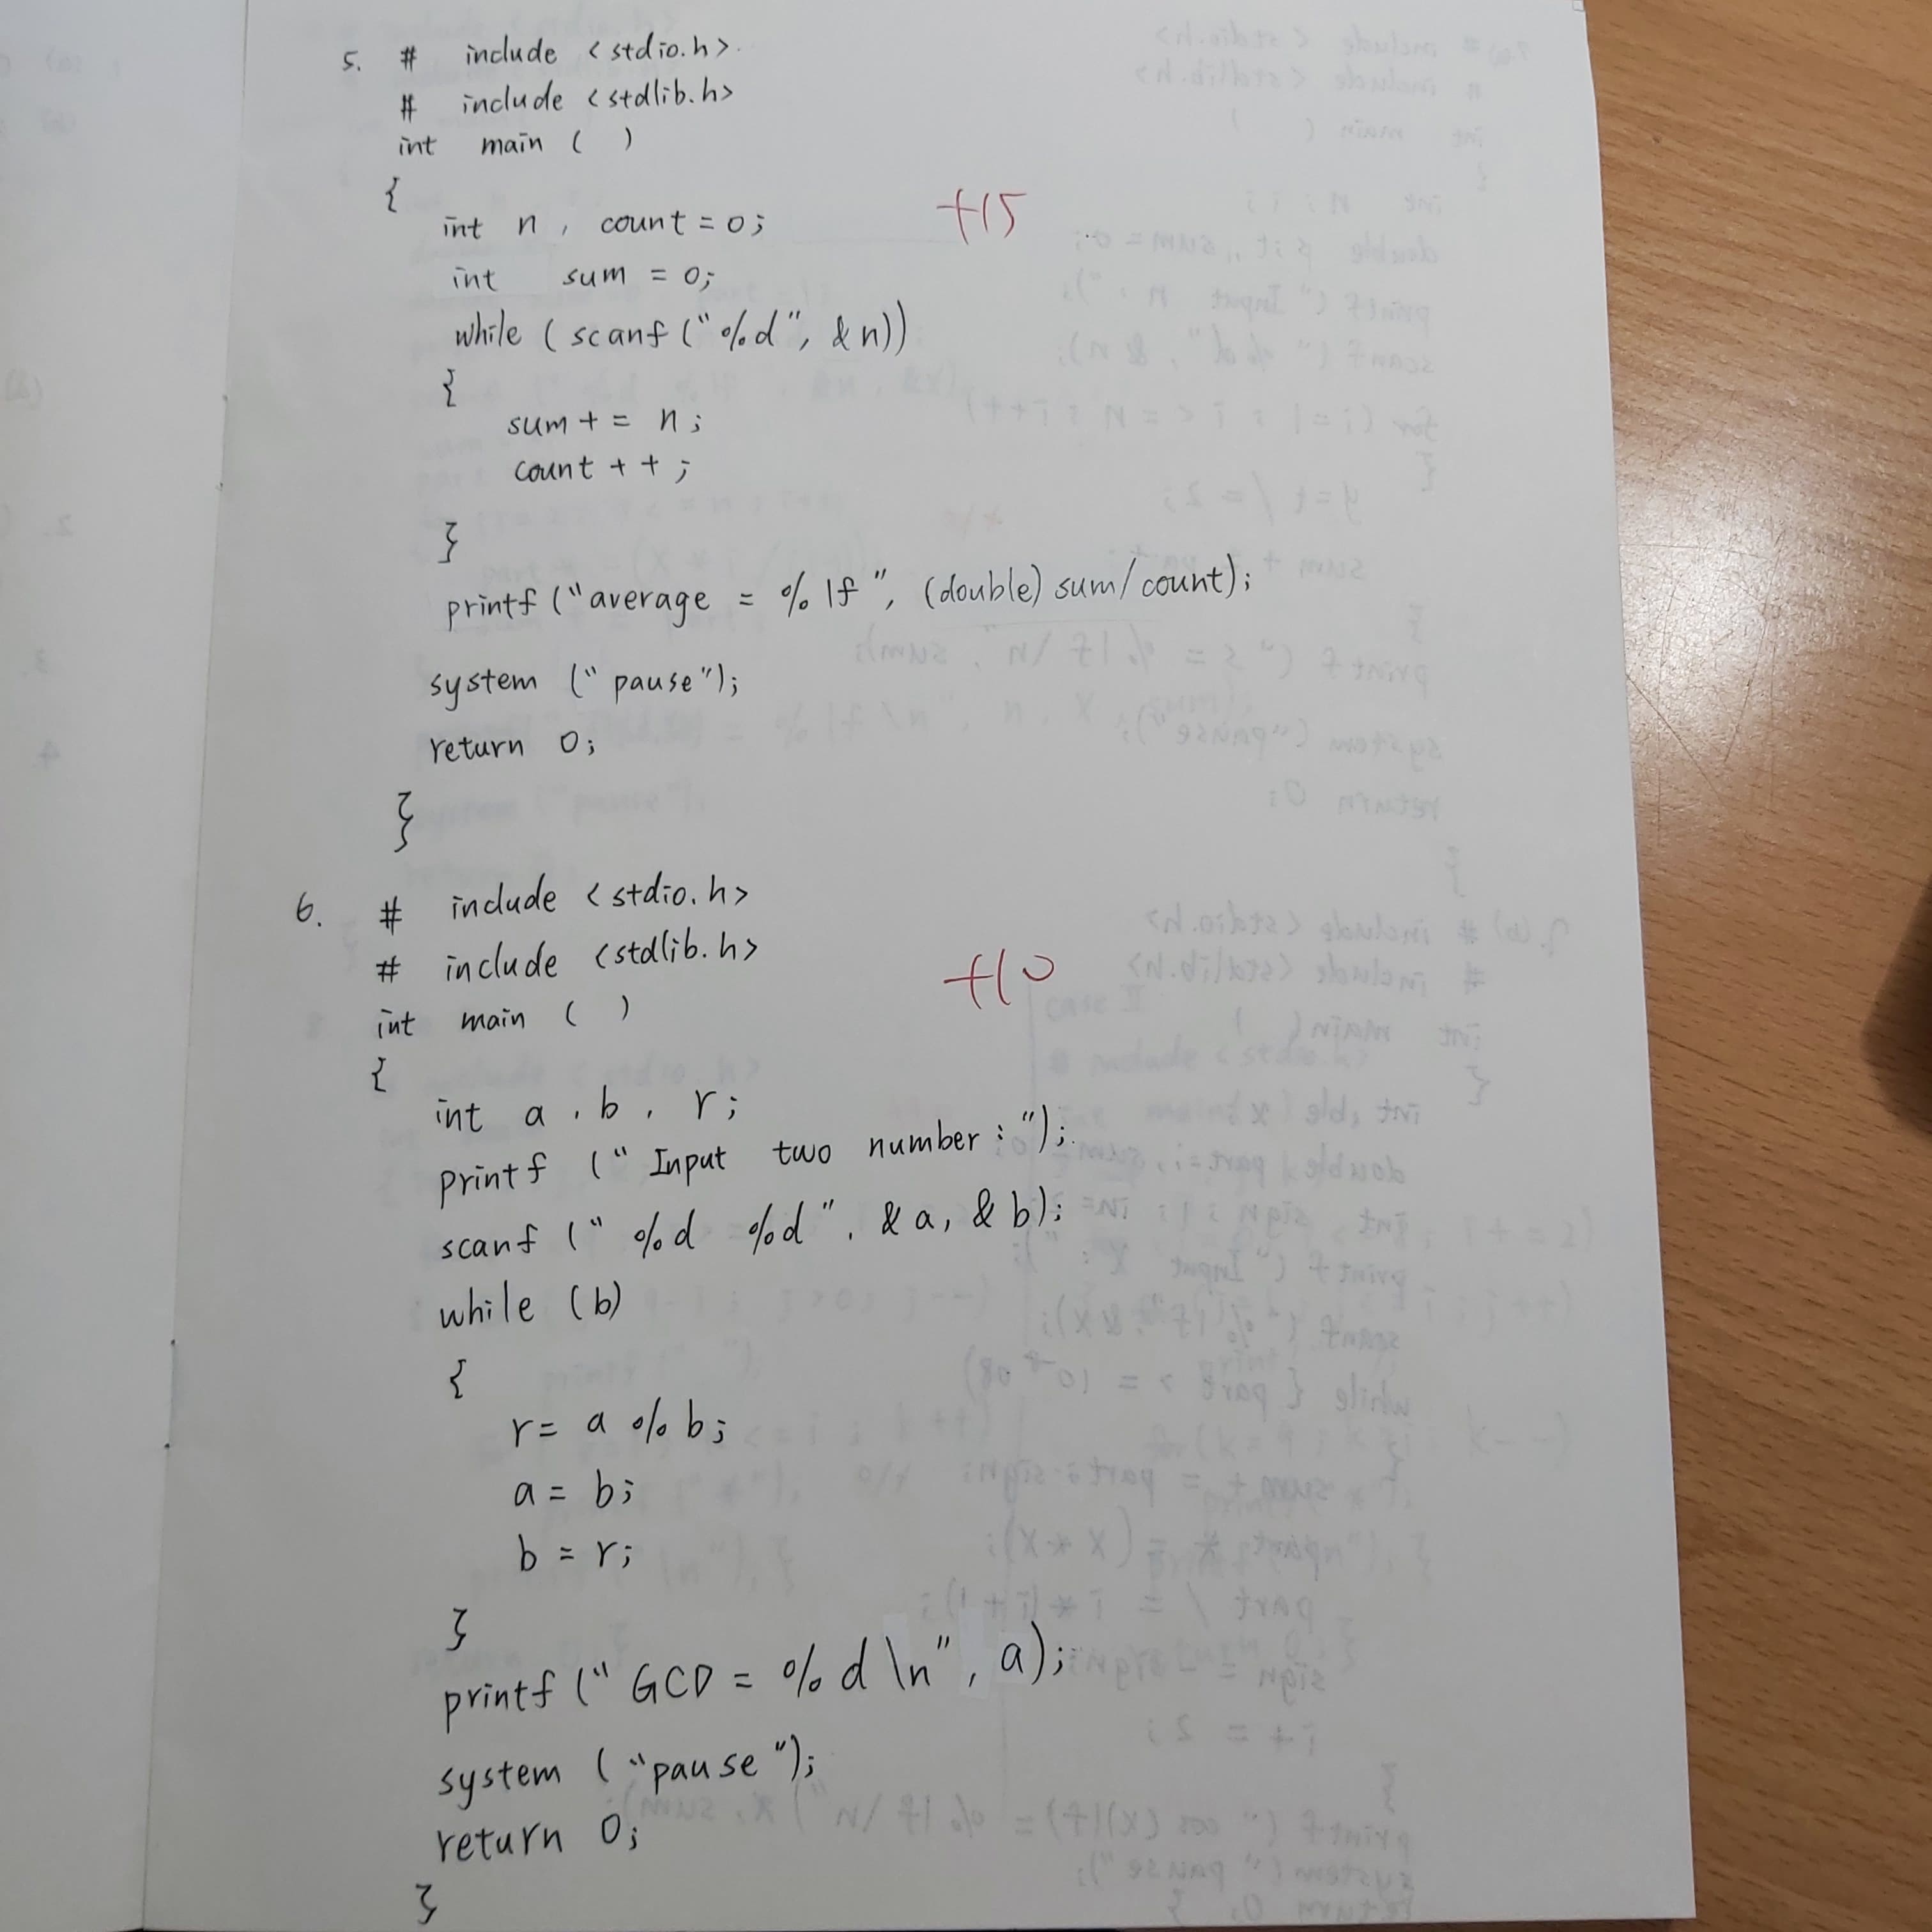 5. # include <stdio.h>
# include <stdlib.h>
int main ( )
{
+15
int n , count = 0;
int sum = 0;
while ( scanf ("%d", & n))
{
sum + = n;
count + + ;
}
printf ("average = % lf ", (double) sum/count);
system (" pause");
return 0;
}
6. # include <stdio.h>
# include <stdlib.h>
+10
int main ( )
{
int a , b , r;
printf (" Input two number : ");
scanf (" %d %d ", & a, & b);
while (b)
{
r = a % b;
a = b;
b = r;
}
printf (" GCD = % d \n", a);
system ( "pause ");
return 0;
}